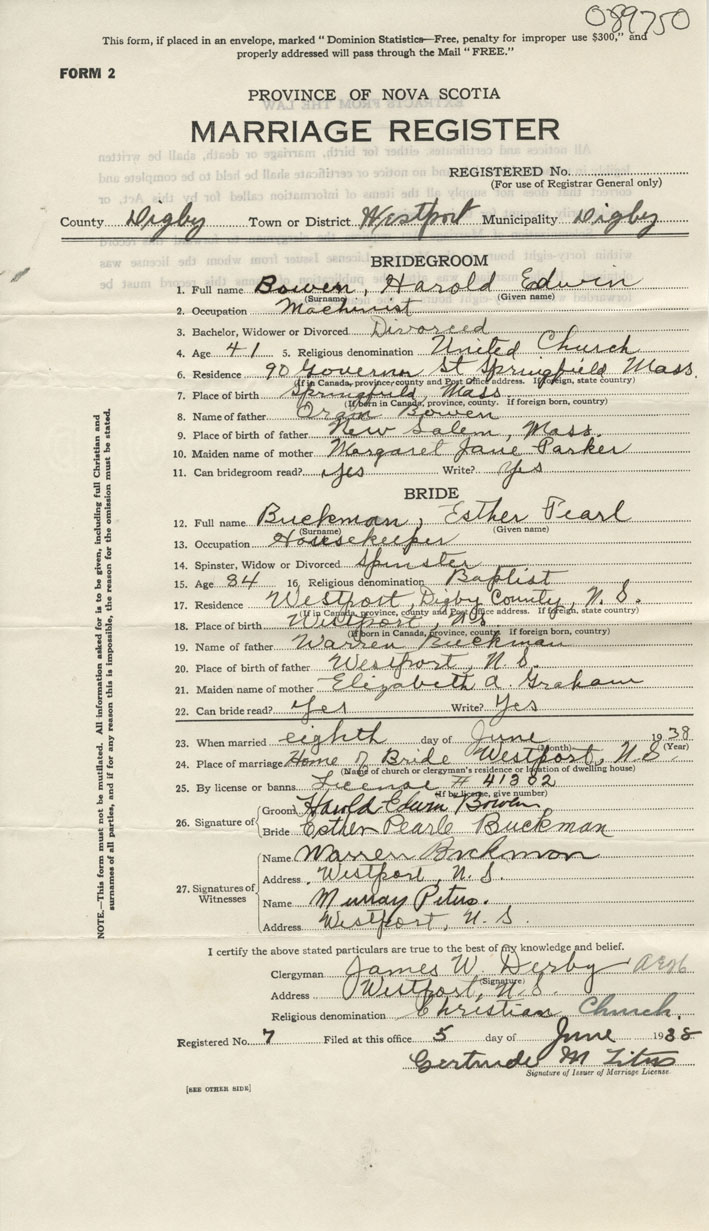 089750
This form, if placed in an envelope, marked "Dominion Statistics—Free, penalty for improper use $300," and
properly addressed will pass through the Mail "FREE."
FORM 2
PROVINCE OF NOVA SCOTIA
MARRIAGE REGISTER
REGISTERED No.
(For use of Registrar General only)
County Digby Town or District Westport Municipality Digby
BRIDEGROOM
1. Full name Bowen, Harold Edwin
(Surname) (Given name)
2. Occupation Machinist
3. Bachelor, Widower or Divorced Divorced
4. Age 41 5. Religious denomination United Church
6. Residence 90 Governor St Springfield Mass.
(If in Canada, province, county and Post Office address. If foreign, state country)
7. Place of birth Springfield, Mass.
(If born in Canada, province, county. If foreign born, country)
8. Name of father Oram Bowen
9. Place of birth of father New Salem, Mass.
10. Maiden name of mother Margaret Jane Parker
11. Can bridegroom read? Yes Write? Yes
BRIDE
12. Full name Buckman, Esther Pearl
(Surname) (Given name)
13. Occupation Housekeeper
14. Spinster, Widow or Divorced Spinster
15. Age 34 16. Religious denomination Baptist
17. Residence Westport, Digby County, N. S.
(If in Canada, province, county and Post Office address. If foreign, state country)
18. Place of birth Westport, N.S.
(If born in Canada, province, county. If foreign born, country)
19. Name of father Warren Buckman
20. Place of birth of father Westport, N. S.
21. Maiden name of mother Elizabeth A. Graham
22. Can bride read? Yes Write? Yes
23. When married eighth day of June 1938
(Month) (Year)
24. Place of marriage Home of Bride Westport, N S
(Name of church or clergyman's residence or location of dwelling house)
25. By license or banns License # 41302
(If by license, give number)
26. Signature of
Groom Harold Edwin Bowen
Bride Esther Pearle Buckman
27. Signatures of Witnesses
Name Warren Buckman
Address Westport, N. S.
Name Murray Peters.
Address Westport, N. S.
I certify the above stated particulars are true to the best of my knowledge and belief.
Clergyman James W. Derby
(Signature)
Address Westport, N. S.
Religious denomination Christian Church.
Registered No. 7 Filed at this office 5 day of June 1938
Gertrude M Titus
Signature of Issuer of Marriage License
[SEE OTHER SIDE]
NOTE.—This form must not be mutilated. All information asked for is to be given, including full Christian and
surnames of all parties, and if for any reason this is impossible, the reason for the omission must be stated.